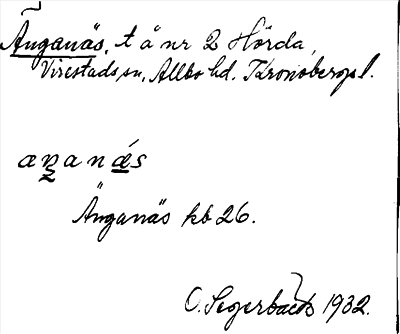 Änganäs, t å nr 2 Hörda,
Virestads sn, Allbo hd. Kronobergs l.
aŋanǽs
Änganäs kb 26.
O. Segerbäck 1932.